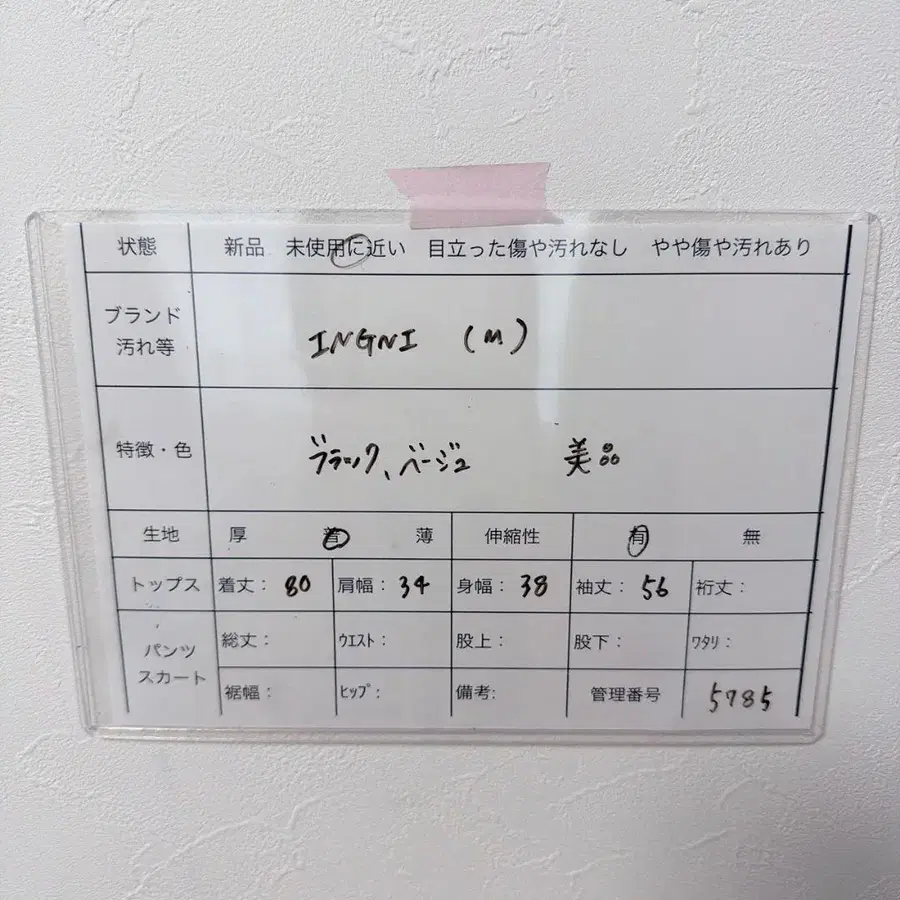 状態 新品 未使用に近い 目立った傷や汚れなし やや傷や汚れあり
ブランド
汚れ等
INGNI (M)
特徴・色 ブラック、ベージュ 美品
生地 厚 普 薄 伸縮性 有 無
トップス 着丈: 80 肩幅: 34 身幅: 38 袖丈: 56 裄丈:
パンツ
スカート
総丈: ウエスト: 股上: 股下: ワタリ:
裾幅: ヒップ: 備考: 管理番号 5785